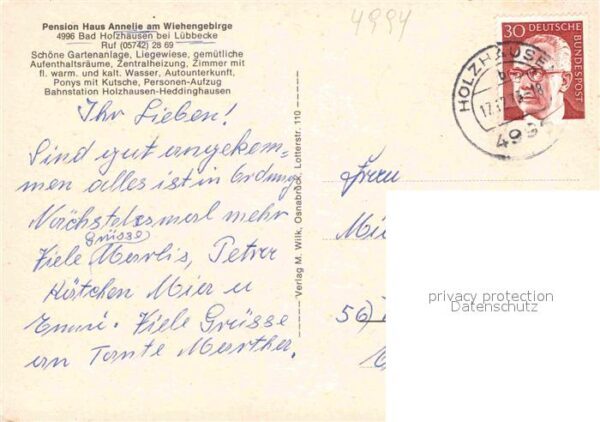 Pension Haus Annelie am Wiehengebirge
4996 Bad Holzhausen bei Lübbecke
Ruf (05742) 28 69
Schöne Gartenanlage, Liegewiese, gemütliche
Aufenthaltsräume, Zentralheizung, Zimmer mit
fl. warm. und kalt. Wasser, Autounterkunft,
Ponys mit Kutsche, Personen-Aufzug
Bahnstation Holzhausen-Heddinghausen
Ihr Lieben!
Sind gut angekom=
men alles ist in Ordnung
Nächstesmal mehr
Grüsse
Viele Marlis, Petrer
Kätchen Mier u
Emmi. Viele Grüsse
an Tante Marther.
Verlag M. Wilk, Osnabrück, Lotterstr. 110
4994
30 DEUTSCHE
BUNDESPOST
HOLZHAUSEN
b
17.12
499
Frau
Mi
56
privacy protection
Datenschutz